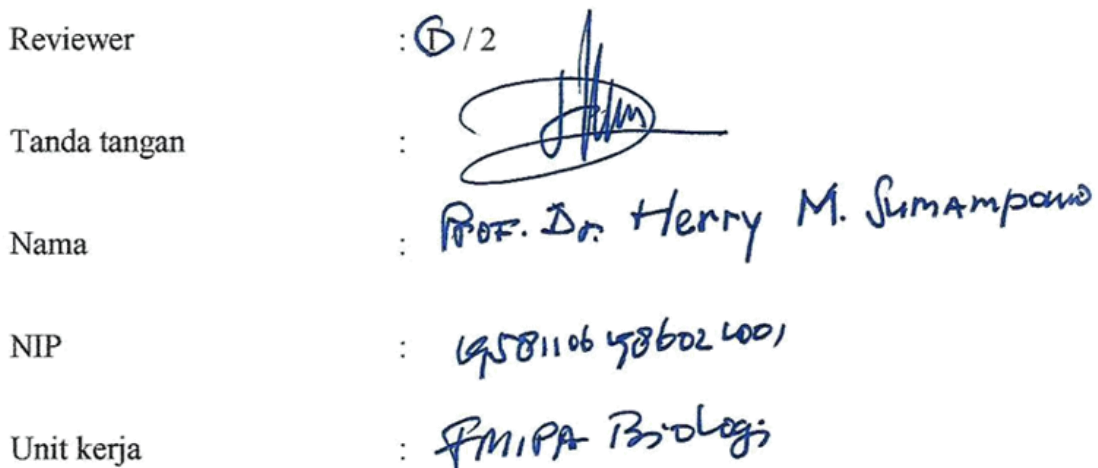 Reviewer : 1 / 2
Tanda tangan :
Nama : Prof. Dr. Herry M. Sumampouw
NIP : 195811061986021001
Unit kerja : FMIPA Biologi